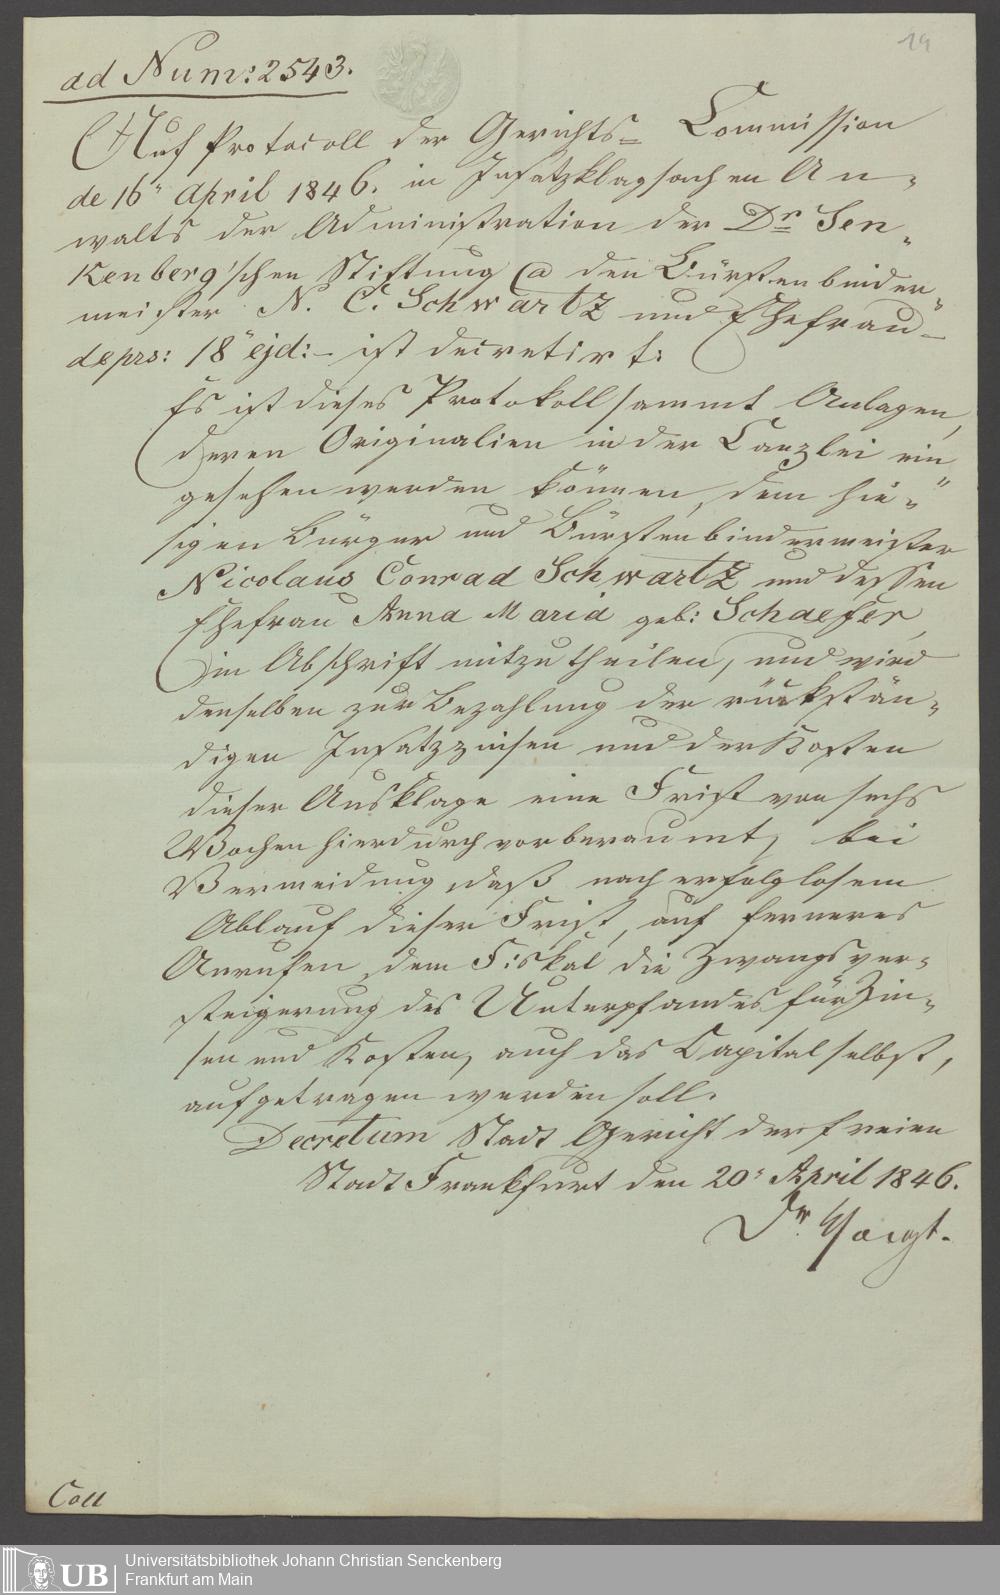 19
ad Num: 2543.
Auf Protocoll der Gerichts= Commission
de 16r April 1846. in Insatzklagsachen An„
walts der Administration der Dr Sen„
kenberg'schen Stiftung @ den Bürstenbinder„
meister N. C. Schwartz und Ehefrau –
de prs: 18r ejd: – ist decretirt:
Es ist dieses Protokoll sammt Anlagen,
deren Originalien in der Canzlei ein„
gesehen werden können, dem hie„
sigen Bürger und Bürstenbindermeister
Nicolaus Conrad Schwartz und dessen
Ehefrau Anna Maria geb: Schaefer,
in Abschrift mitzutheilen, und wird
denselben zur Bezahlung der rückstän„
digen Insatzzinsen und der Kosten
dieser Ausklage eine Frist von sechs
Wochen hierdurch vorberaumt, bei
Vermeidung, daß nach erfolglosem
Ablauf dieser Frist, auf ferneres
Anrufen, dem Fiskal die Zwangsver„
steigerung des Unterpfandes für Zin„
sen und Kosten, auch das Capital selbst,
aufgetragen werden soll.
Decretum Stadt Gericht der freien
Stadt Frankfurt den 20r April 1846.
Dr. Voigt.
Coll
UB
Universitätsbibliothek Johann Christian Senckenberg
Frankfurt am Main